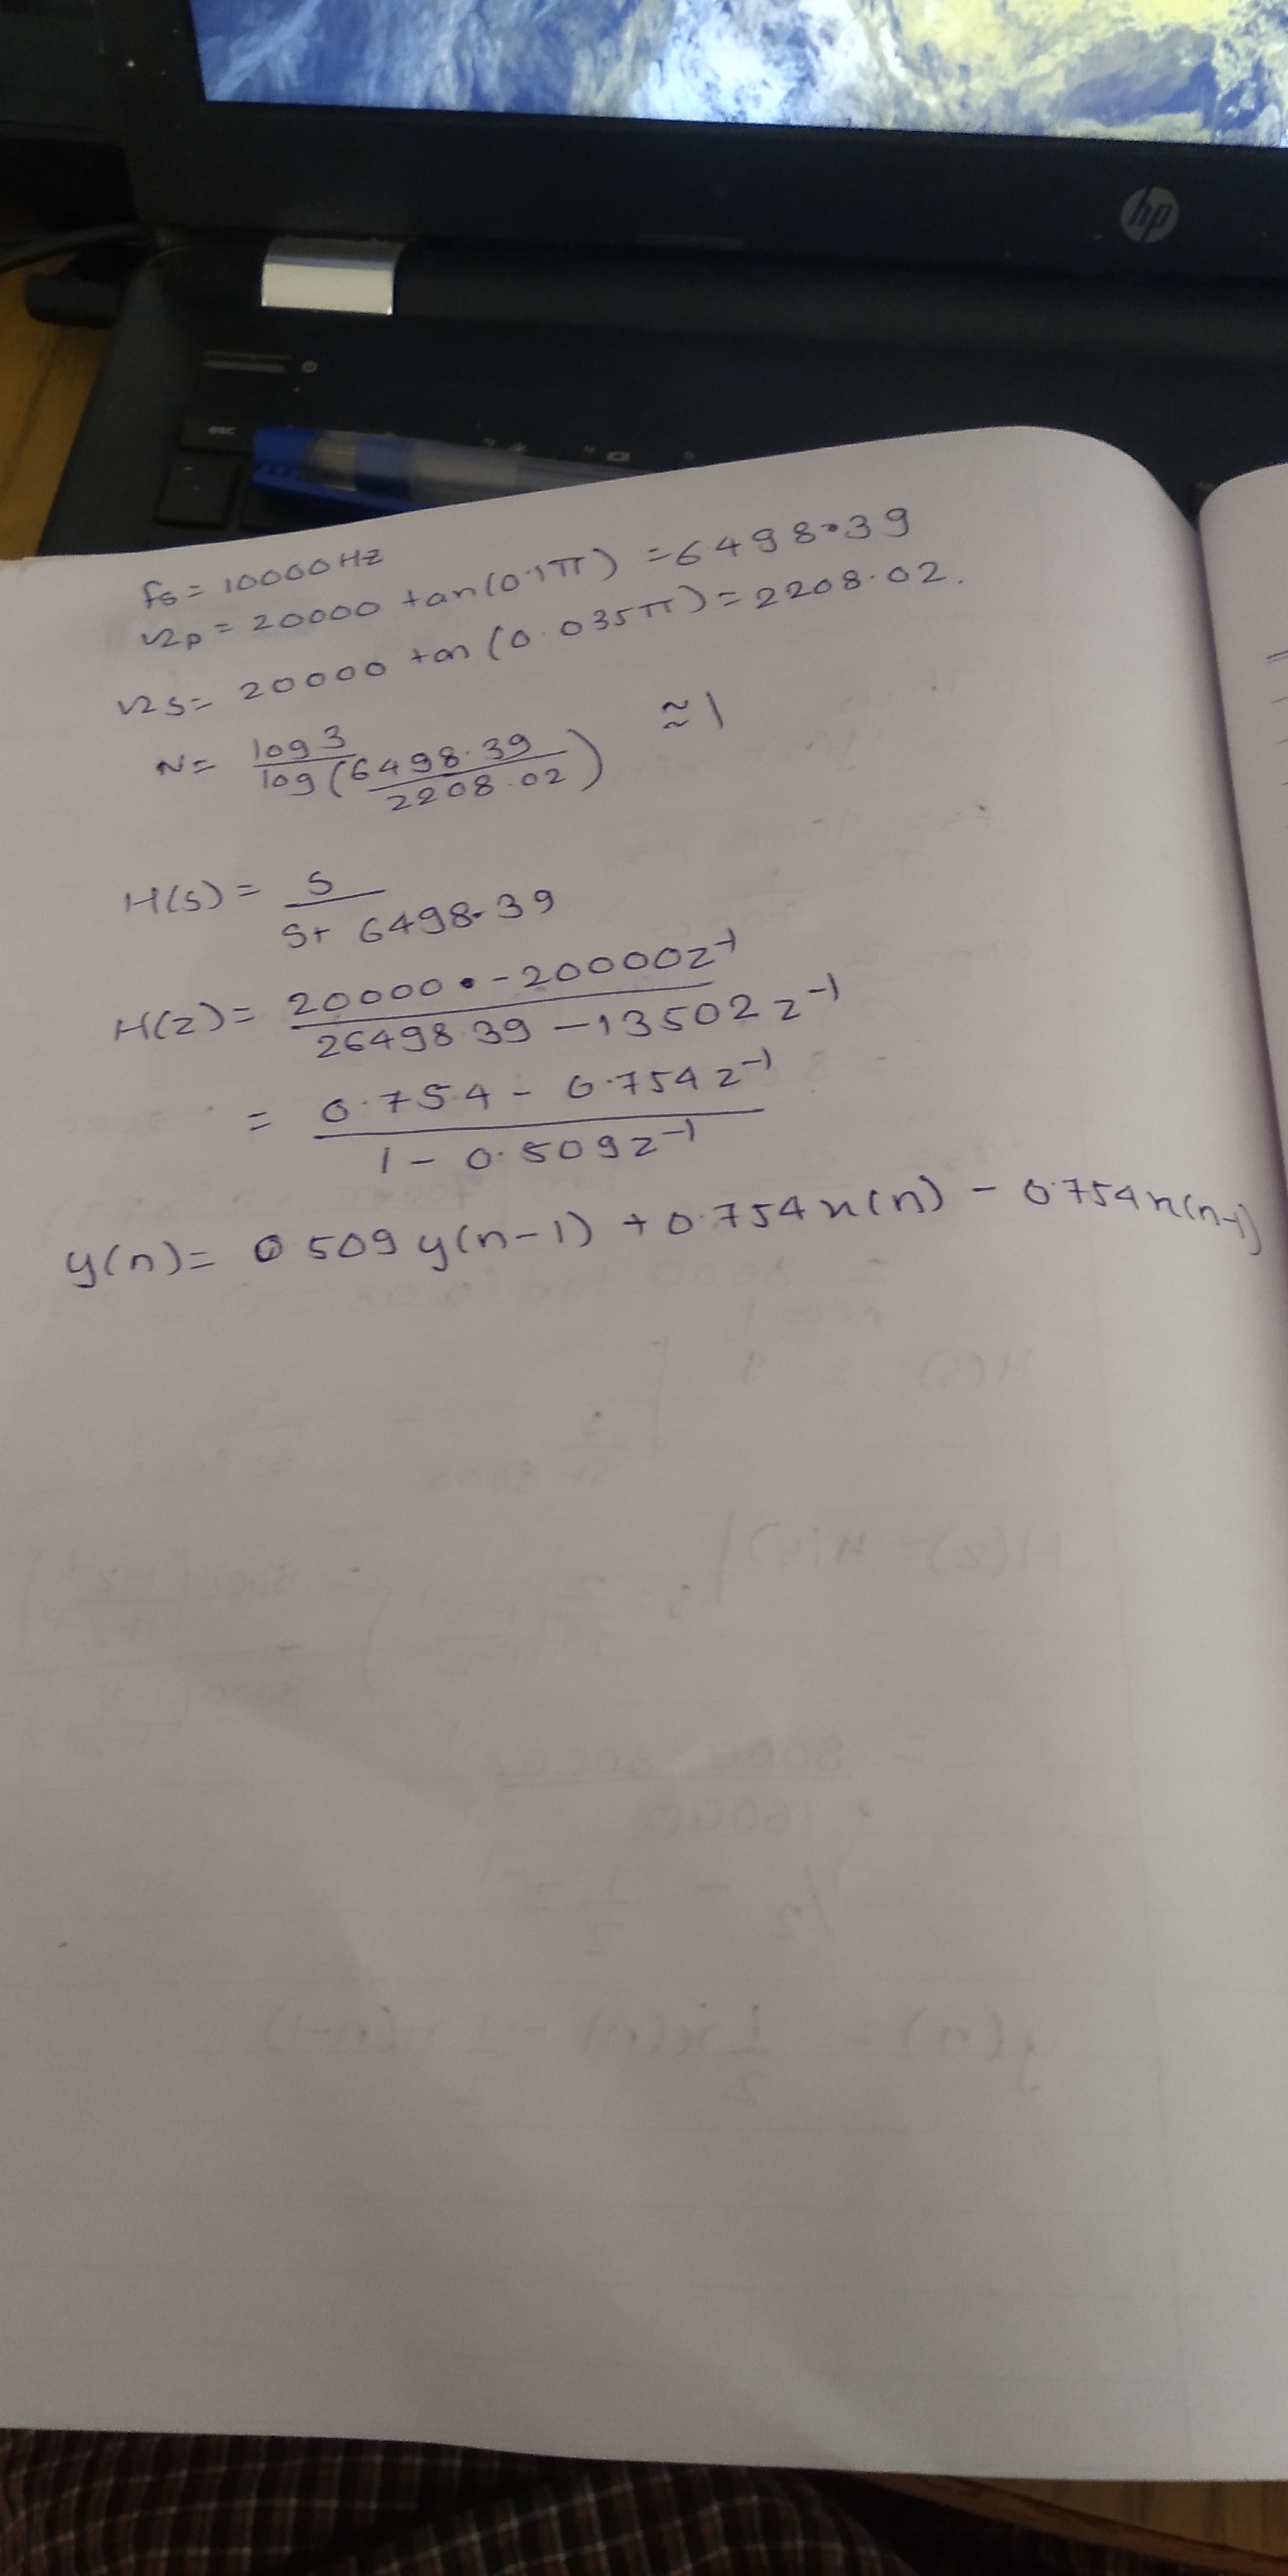 hp
esc
fs = 10000 Hz
Ωp = 20000 tan(0.1π) = 6498.39
Ωs = 20000 tan(0.035π) = 2208.02.
N = log 3 / log(6498.39 / 2208.02) ≃ 1
H(s) = s / s + 6498.39
H(z) = 20000 - 20000z⁻¹ / 26498.39 - 13502z⁻¹
= 0.754 - 0.754z⁻¹ / 1 - 0.509z⁻¹
y(n) = 0.509 y(n-1) + 0.754x(n) - 0.754x(n-1)